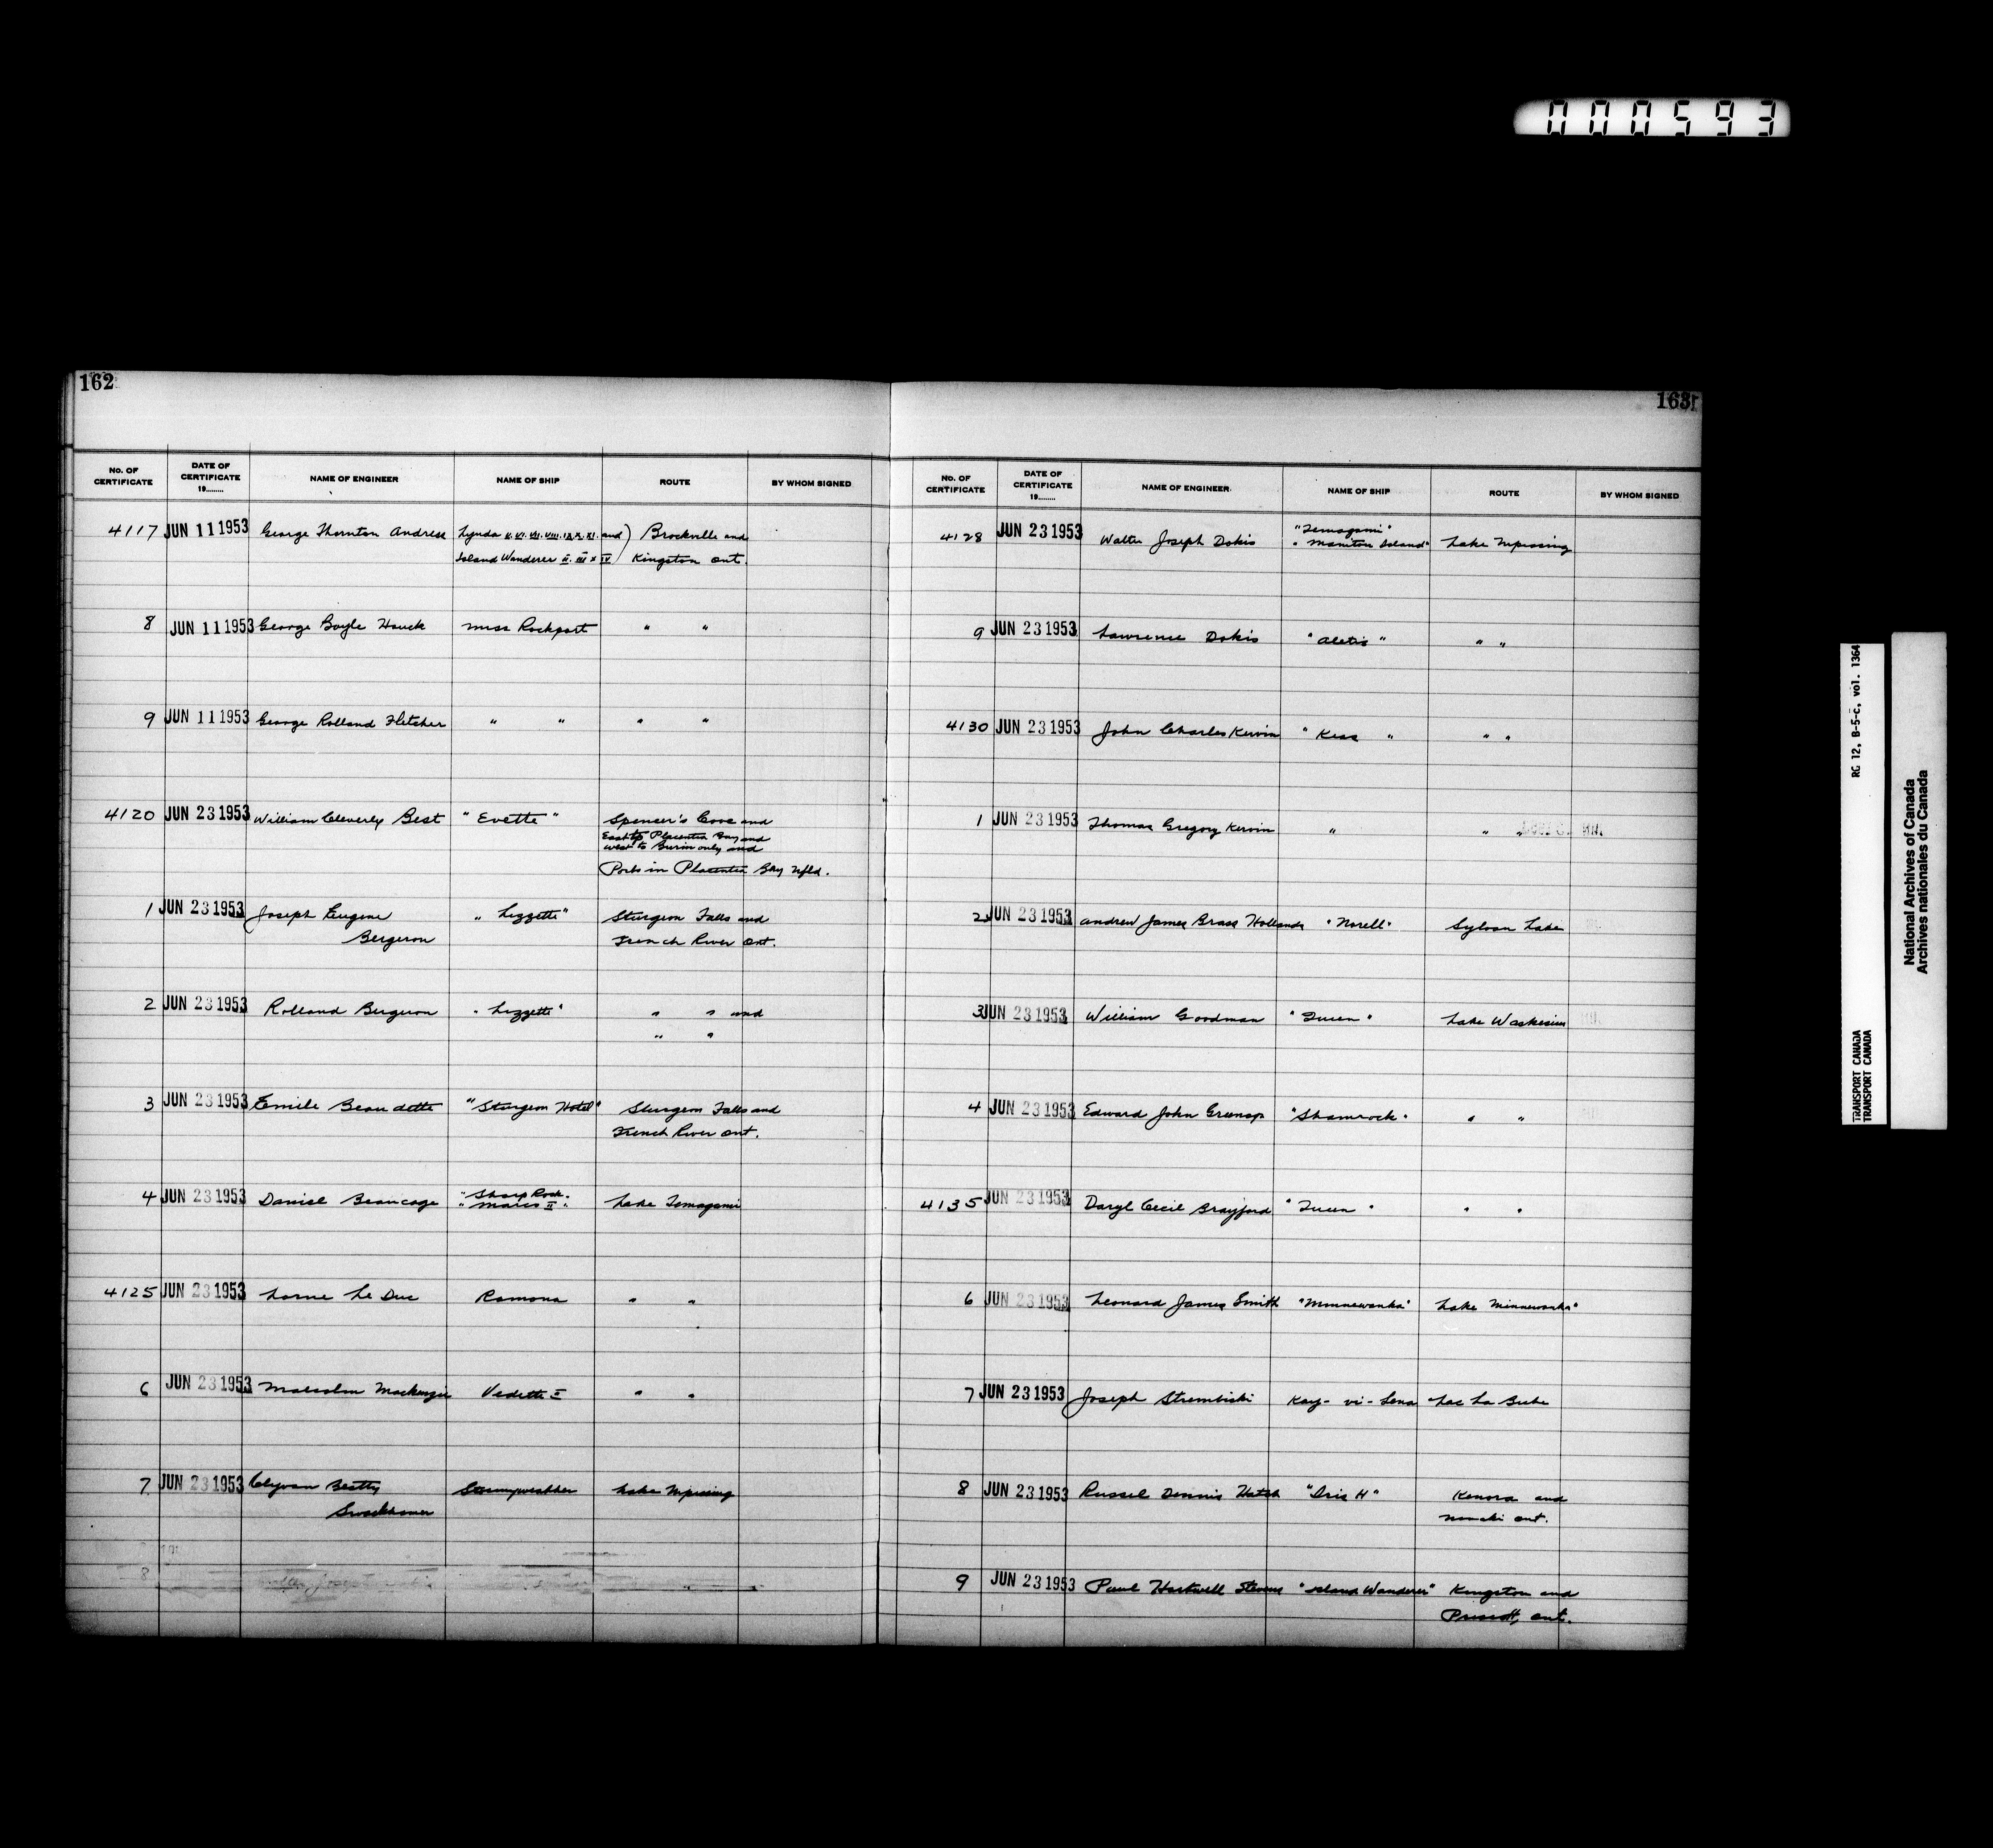 000593
162
No. OF CERTIFICATE DATE OF CERTIFICATE 19........ NAME OF ENGINEER NAME OF SHIP ROUTE BY WHOM SIGNED
4117 JUN 11 1953 George Thornton Andress Lynda V. VI. VII. VIII. IX. X. XI. and) Brockville and
Island Wanderer II. III & IV) Kingston Ont.
8 JUN 11 1953 George Boyle Hauck Miss Rockport " "
9 JUN 11 1953 George Rolland Fletcher " " " "
4120 JUN 23 1953 William Cleverly Best "Evette" Spencer's Cove and
East to Placentia Bay and
west to Burin only and
Ports in Placentia Bay Nfld.
1 JUN 23 1953 Joseph Eugene "Lizzette" Sturgeon Falls and
Bergeron French River Ont.
2 JUN 23 1953 Rolland Bergeron "Lizzette" " " and
" "
3 JUN 23 1953 Emile Beaudette "Sturgeon Hotel" Sturgeon Falls and
French River Ont.
4 JUN 23 1953 Daniel Beaucage "Sharp Rock"
II" Lake Temagami
4125 JUN 23 1953 Lorne Le Duc Ramona " "
6 JUN 23 1953 Malcolm Mackenzie Vedette II " "
7 JUN 23 1953 Beatty Lake Nipissing
8
163
No. OF CERTIFICATE DATE OF CERTIFICATE 19........ NAME OF ENGINEER NAME OF SHIP ROUTE BY WHOM SIGNED
4128 JUN 23 1953 Walter Joseph Dokis "Temagami"
"Manitou Island" Lake Nipissing
9 JUN 23 1953 Lawrence Dokis " " " "
4130 JUN 23 1953 John Charles Kervin " " " "
1 JUN 23 1953 Thomas Gregory Kervin " " "
2 JUN 23 1953 Andrew James Brass Hollands "Norell" Sylvan Lake
3 JUN 23 1953 William Goodman " " Lake Waskesiu
4 JUN 23 1953 Edward John Greenop "Shamrock" " "
4135 JUN 23 1953 Daryl Cecil Brayford " " " "
6 JUN 23 1953 Leonard James Smith "Minnewanka" Lake Minnewanka"
7 JUN 23 1953 Joseph Strembiski Kay-vi-Lena Lac La Biche
8 JUN 23 1953 Russel Dennis Hatch "Iris H" Kenora and
Ont.
9 JUN 23 1953 Paul Hartwell Stevens "Island Wanderer" Kingston and
Prescott, Ont.
RG 12, B-5-c, vol. 1364
TRANSPORT CANADA
TRANSPORT CANADA
National Archives of Canada
Archives nationales du Canada